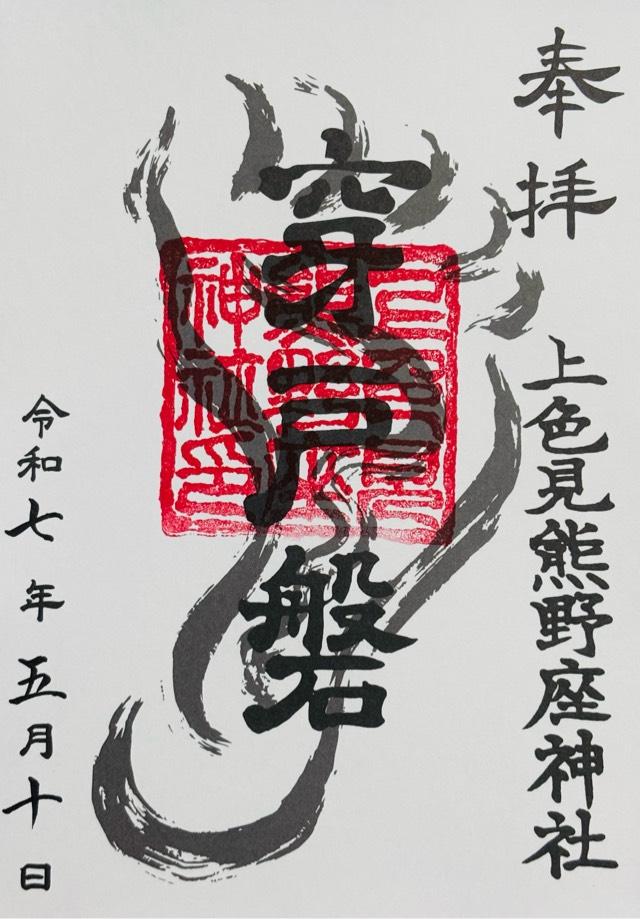 奉拝
上色見熊野座神社
穿戸磐
神社印
令和七年五月十日